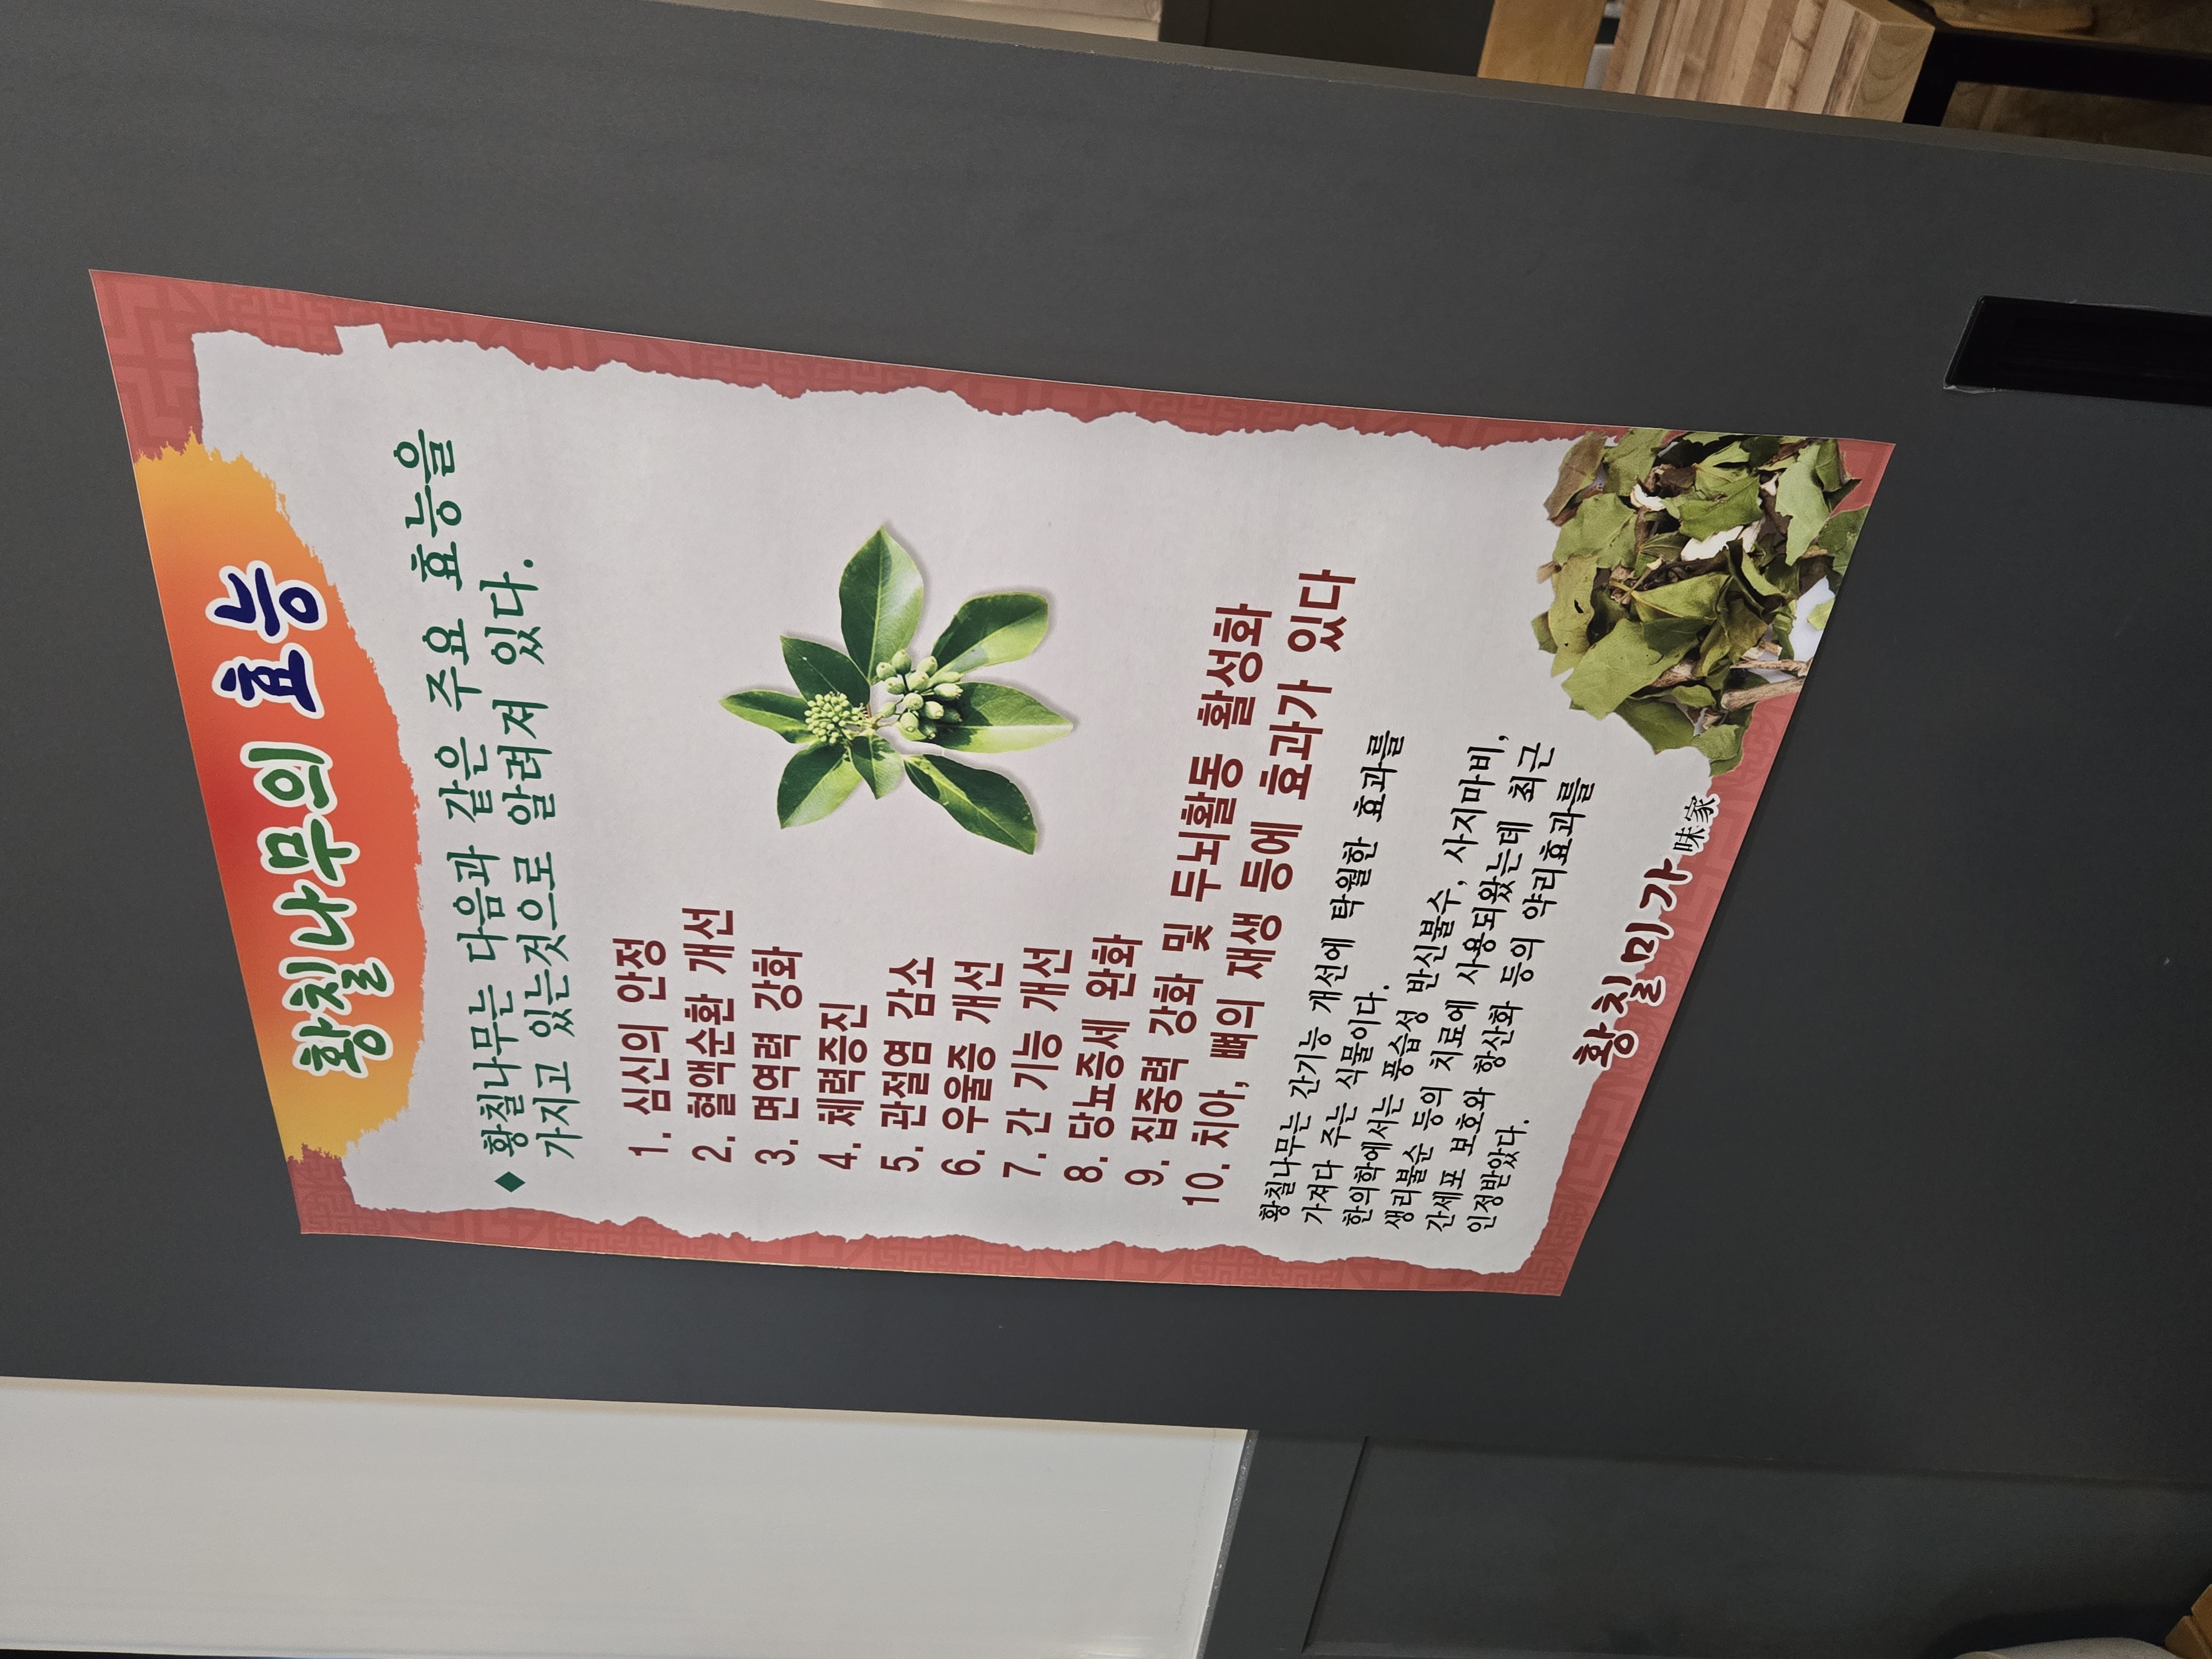 황칠나무의 효능
◆ 황칠나무는 다음과 같은 주요 효능을
가지고 있는것으로 알려져 있다.
1. 심신의 안정
2. 혈액순환 개선
3. 면역력 강화
4. 체력증진
5. 관절염 감소
6. 우울증 개선
7. 간 기능 개선
8. 당뇨증세 완화
9. 집중력 강화 및 두뇌활동 활성화
10. 치아, 뼈의 재생 등에 효과가 있다
황칠나무는 간기능 개선에 탁월한 효과를
가져다 주는 식물이다.
한의학에서는 풍습성 반신불수, 사지마비,
생리불순 등의 치료에 사용되왔는데 최근
간세포 보호와 항산화 등의 약리효과를
인정받았다.
황칠미가 味家